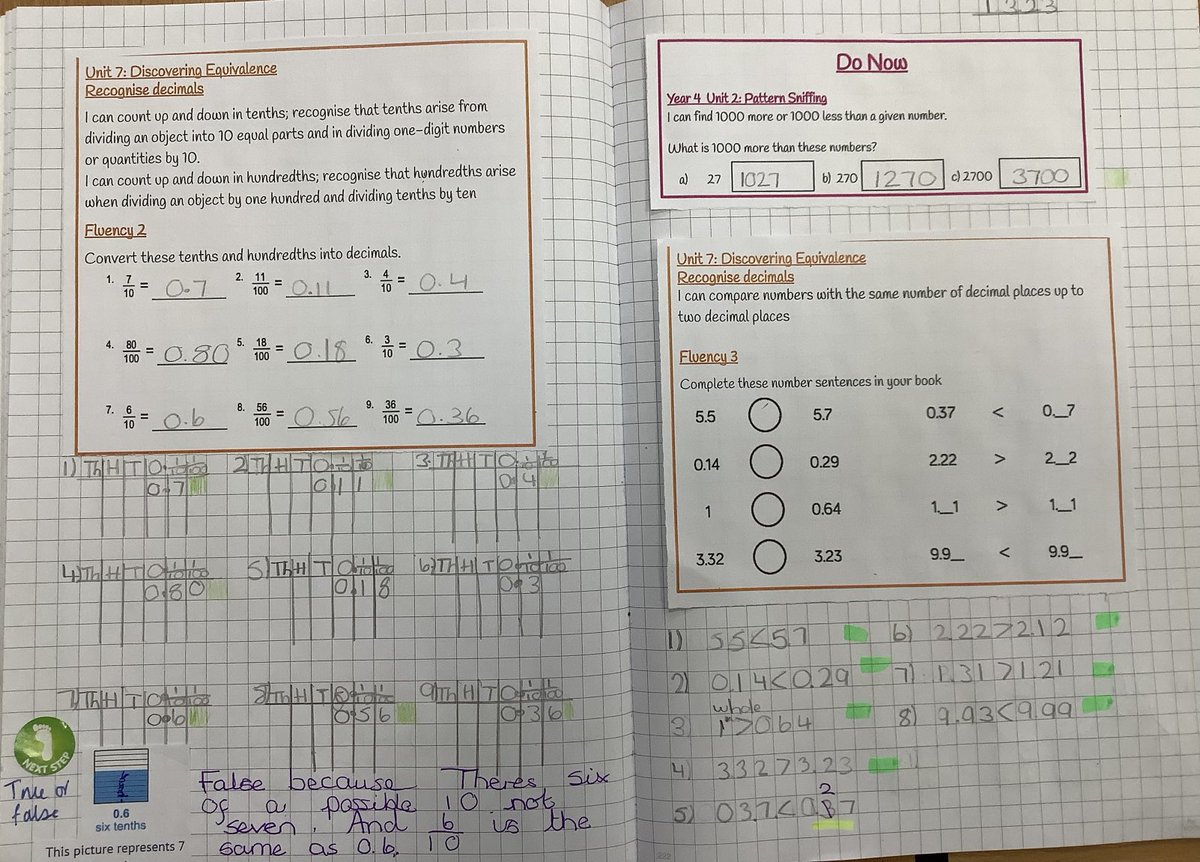 Unit 7: Discovering Equivalence
Recognise decimals
I can count up and down in tenths; recognise that tenths arise from
dividing an object into 10 equal parts and in dividing one-digit numbers
or quantities by 10.
I can count up and down in hundredths; recognise that hundredths arise
when dividing an object by one hundred and dividing tenths by ten
Fluency 2
Convert these tenths and hundredths into decimals.
1. 7/10 = 0.7 2. 11/100 = 0.11 3. 4/10 = 0.4
4. 80/100 = 0.80 5. 18/100 = 0.18 6. 3/10 = 0.3
7. 6/10 = 0.6 8. 56/100 = 0.56 9. 36/100 = 0.36
1) Th H T O 1/10 1/100 2) Th H T O 1/10 1/100 3. Th H T O 1/10 1/100
0.7 0.11 0.4
4) Th H T O 1/10 1/100 5) Th H T O 1/10 1/100 6) Th H T O 1/10 1/100
0.80 0.18 0.3
7) Th H T O 1/10 1/100 8) Th H T O 1/10 1/100 9) Th H T O 1/10 1/100
0.6 0.56 0.36
NEXT STEP
True or
false
0.6
six tenths
This picture represents 7
False because Theres six
of a possible 10 not
seven. And 6/10 is the
same as 0.6.
1323
Do Now
Year 4 Unit 2: Pattern Sniffing
I can find 1000 more or 1000 less than a given number.
What is 1000 more than these numbers?
a) 27 1027 b) 270 1270 c) 2700 3700
Unit 7: Discovering Equivalence
Recognise decimals
I can compare numbers with the same number of decimal places up to
two decimal places
Fluency 3
Complete these number sentences in your book
5.5 5.7 0.37 < 0._7
0.14 0.29 2.22 > 2._2
1 0.64 1._1 > 1._1
3.32 3.23 9.9_ < 9.9_
1) 5.5<5.7 6) 2.22>2.12
2) 0.14<0.29 7) 1.31>1.21
whole
3 1>0.64 8) 9.93<9.99
4) 3.32>3.23
2
5) 0.37<0.87
222